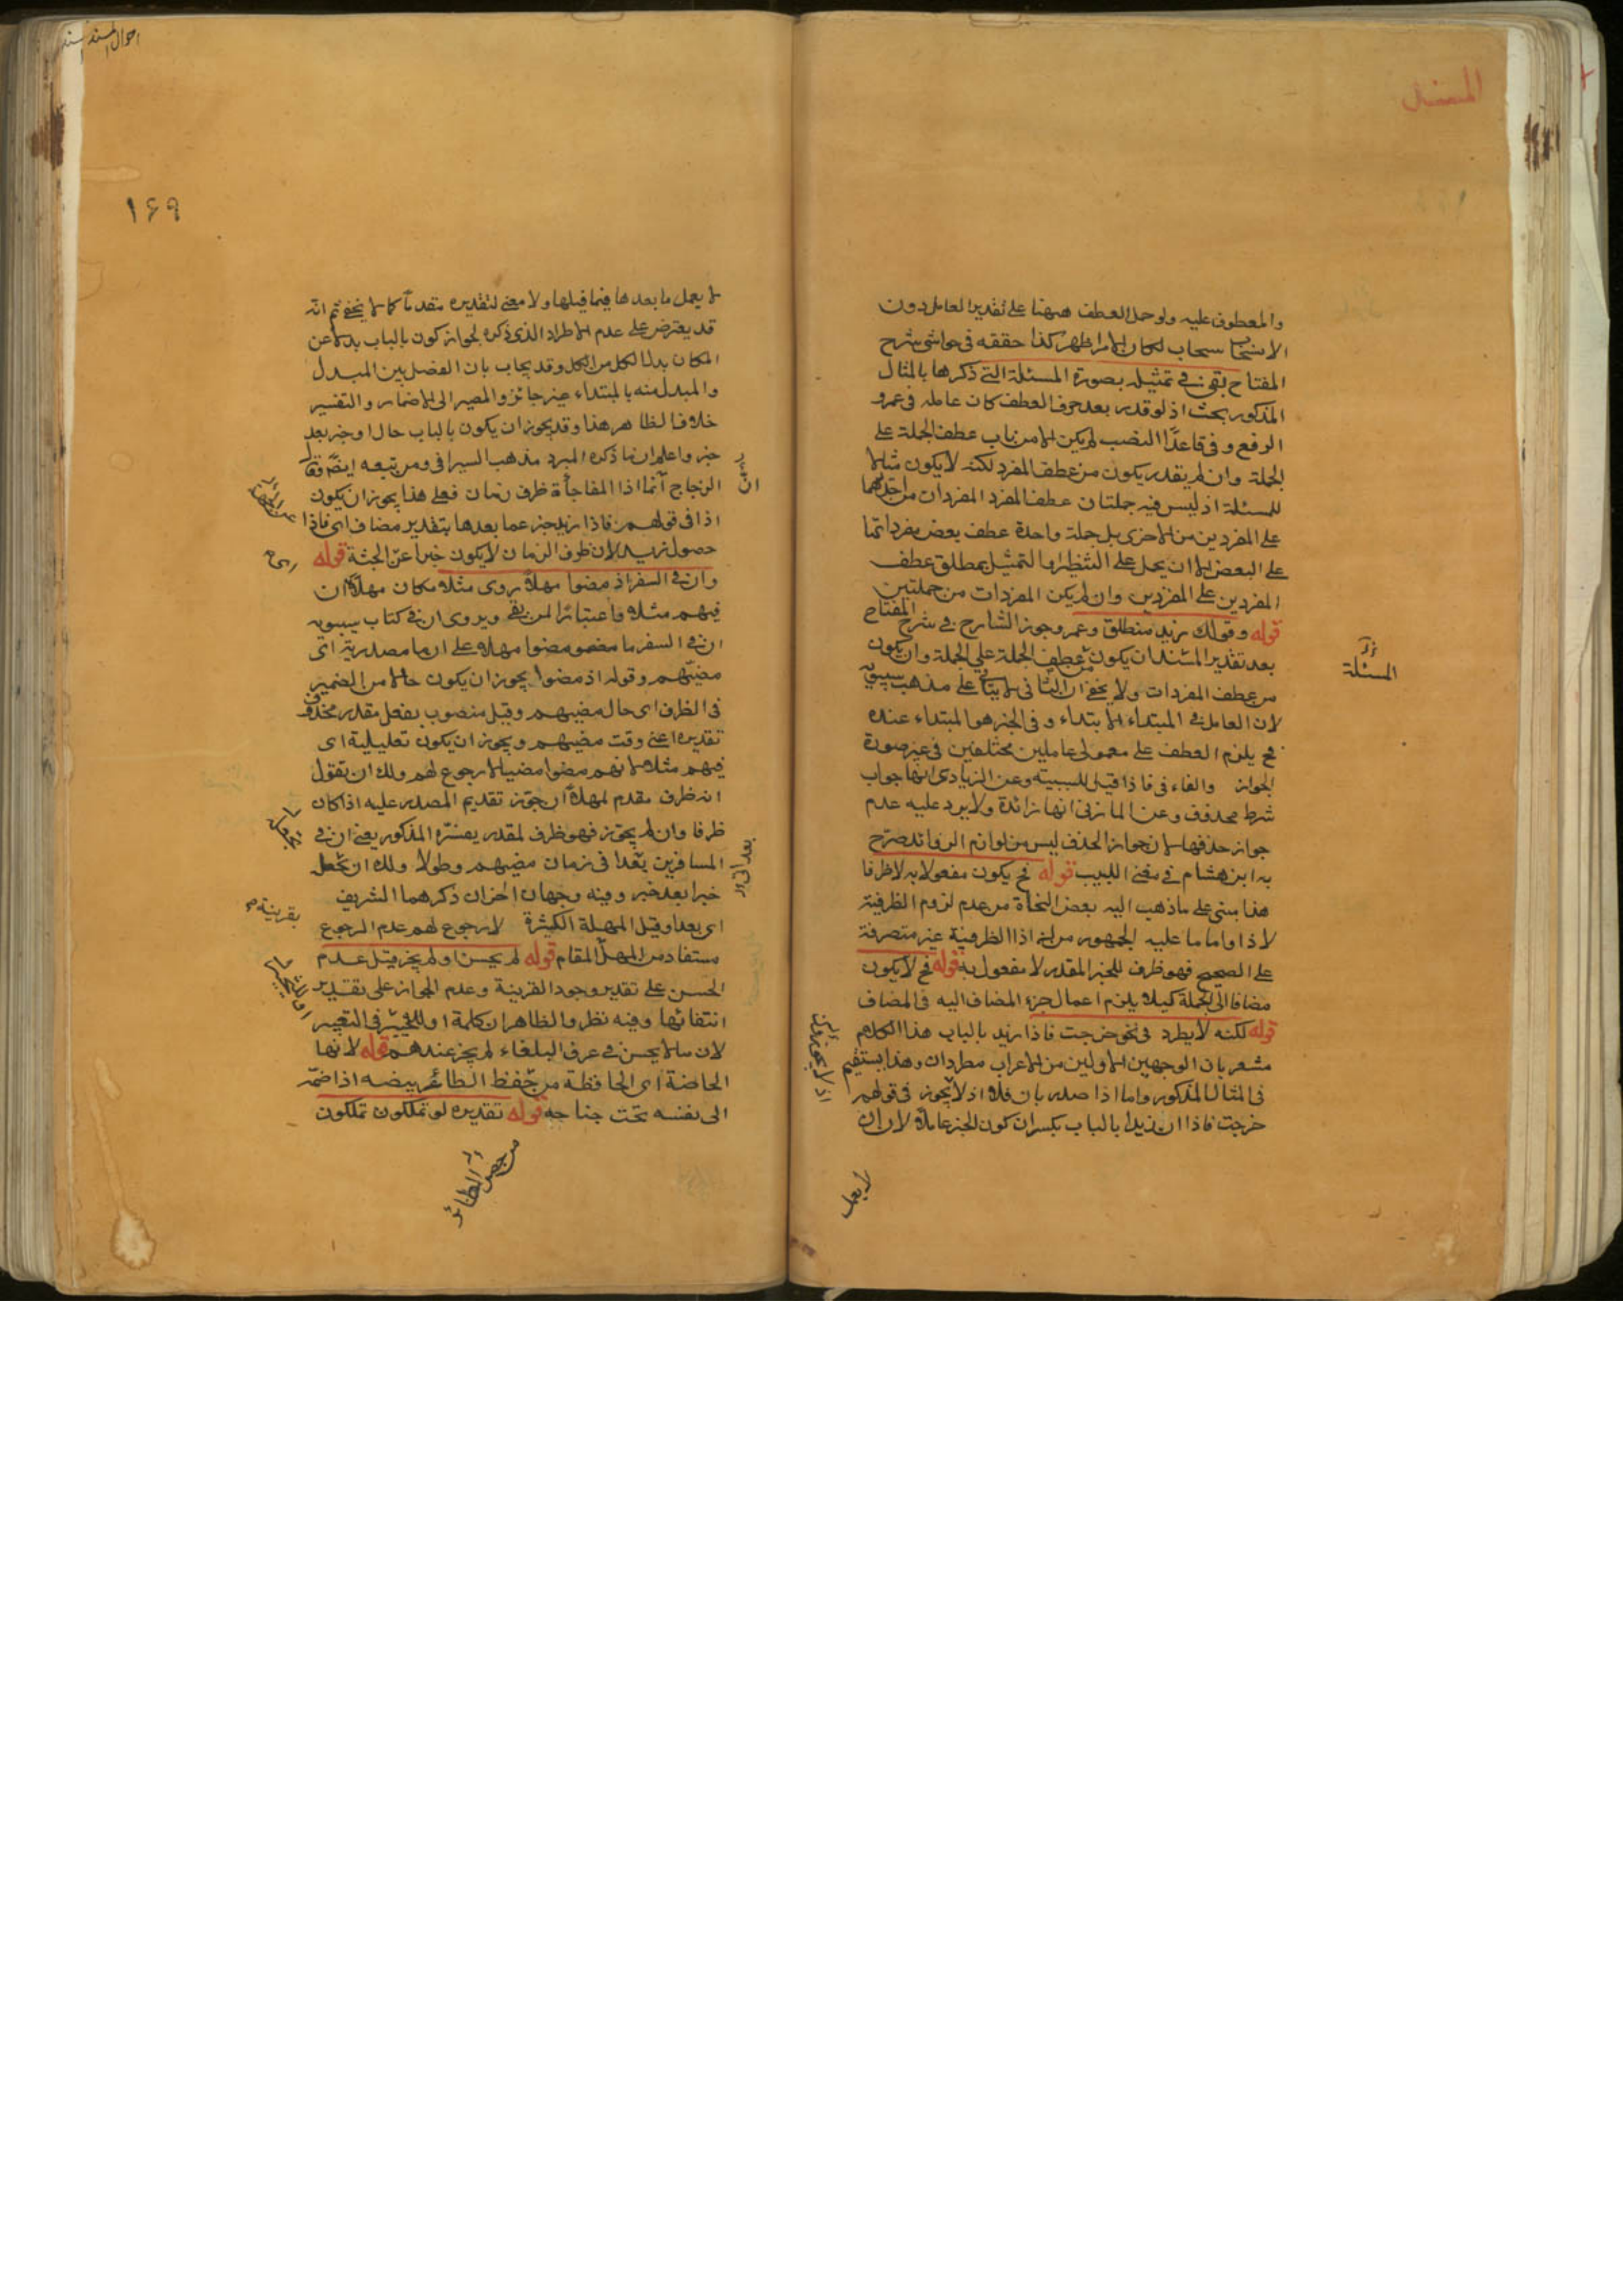 المسند
والمعطوف عليه ولو حمل العطف ههنا على تقدير العامل دون
الانسحاب لكان الامر اظهر كذا حققه فى حواشى شرح
المفتاح بقى فى تمثيله بصورة المسئلة التى ذكرها بالمثال
المذكور بحث اذ لو قدر بعد حرف العطف كان عامله فى عمرو
الرفع وفى قاعدًا النصب لم يكن الا من باب عطف الجملة على
الجملة وان لم يقدر يكون من عطف المفرد لكنه لا يكون مثالا
للمسئلة اذ ليس فيه جملتان عطف المفرد المفردان من احديهما
على المفردين من الاخرى بل جملة واحدة عطف بعض مفرداتها
على البعض الا ان يحمل على التنظير او التمثيل بمطلق عطف
المفردين على المفردين وان لم يكن المفردات من جملتين
قوله وقولك زيد منطلق وعمرو جوز الشارح فى شرح المفتاح
بعد تقدير المسند ان يكون من عطف الجملة على الجملة وان يكون
من عطف المفردات ولا يخفى ان الثانى لا يتأتى على مذهب سيبويه
لان العامل فى المبتداء الابتداء وفى الخبر هو المبتداء عنده
فح يلزم العطف على معمولى عاملين مختلفين فى غير صورة
الجواز والفاء فى فاذا قيل للسببية وعن الزيادى انها جواب
شرط محذوف وعن المازنى انها زائدة ولا يرد عليه عدم
جواز حذفها لان جواز الحذف ليس من لوازم الزوائد صرح
به ابن هشام فى مغنى اللبيب قوله فح يكون مفعولا به لا ظرفا
هذا مبنى على ما ذهب اليه بعض النحاة من عدم لزوم الظرفية
لاذا واما ما عليه الجمهور من ان اذا الظرفية غير متصرفة
على الصحيح فهو ظرف للخبر المقدر لا مفعول به قوله فح لا يكون
مضافا الى الجملة كيلا يلزم اعمال جزء المضاف اليه فى المضاف
قوله لكنه لا يطرد فى نحو خرجت فاذا زيد بالباب هذا الكلام
مشعر بان الوجهين الاولين من الاعراب مطردان وهذا يستقيم
فى المثال المذكور واما اذا صدر بان فلا اذ لا يجوز فى قولهم
خرجت فاذا ان زيدا بالباب بكسر ان كون الخبر عاملا لان ان
المسئلة
لا يعمل
احوال المسند
١٦٩
لا يعمل ما بعدها فيما قبلها ولا معنى لتقديره مقدما كما لا يخفى ثم انه
قد يعترض على عدم الاطراد الذى ذكره لجواز كون بالباب بدلا عن
المكان بدل الكل من الكل وقد يجاب بان الفصل بين المبدل
والمبدل منه بالمبتداء غير جائز والمصير الى الاضمار والتفسير
خلاف الظاهر هذا وقد يجوز ان يكون بالباب حالا او خبر بعد
خبر واعلم ان ما ذكره المبرد مذهب السيرافى ومن تبعه ايضًا وقال
الزجاج انما اذا المفاجأة ظرف زمان فعلى هذا يجوز ان يكون
اذا فى قولهم فاذا زيد خبر عما بعدها بتقدير مضاف اى فاذا
حصول زيد لان ظرف الزمان لا يكون خبرا عن الجثة قوله
وان فى السفر اذ مضوا مهلا روى مثلا مكان مهلا ان
فيهم مثلا فاعتبائرا لمن بقى ويروى ان فى كتاب سيبويه
ان فى السفر ما مضموا مهلا على ان ما مصدرية اى
مضيهم وقوله اذ مضوا يجوز ان يكون حالا من الضمير
فى الظرف اى حال مضيهم وقيل منصوب بفعل مقدر محذوف
تقديره اعنى وقت مضيهم ويجوز ان يكون تعليلية اى
فيهم مثلا لانهم مضوا مضيا لا رجوع لهم ولك ان تقول
انه ظرف مقدم لمهلا ان جوز تقديم المصدر عليه اذا كان
ظرفا وان لم يجوز فهو ظرف لمقدر يفسره المذكور يعنى ان فى
المسافرين بعدا فى زمان مضيهم وطولا ولك ان تجعل
خبرا بعد خبر وفيه وجهان اخران ذكرهما الشريف
اى بعدا وقيل المهلة الكثيرة لا رجوع لهم عدم الرجوع
مستفاد من المهل المقام قوله لم يحسن او لم يجز قيل عدم
الحسن على تقدير وجود القرينة وعدم الجواز على تقدير
انتفائها وفيه نظر والظاهر ان كلمة او للتخيير فى التعبير
لان ما لا يحسن فى عرف البلغاء لم يجز عندهم قوله لانها
الحاضنة اى الحافظة من حفظ الطائر بيضه اذا ضمه
الى نفسه تحت جناحه قوله تقديره لو تملكون تملكون
بقرينة
من حضن الطائر